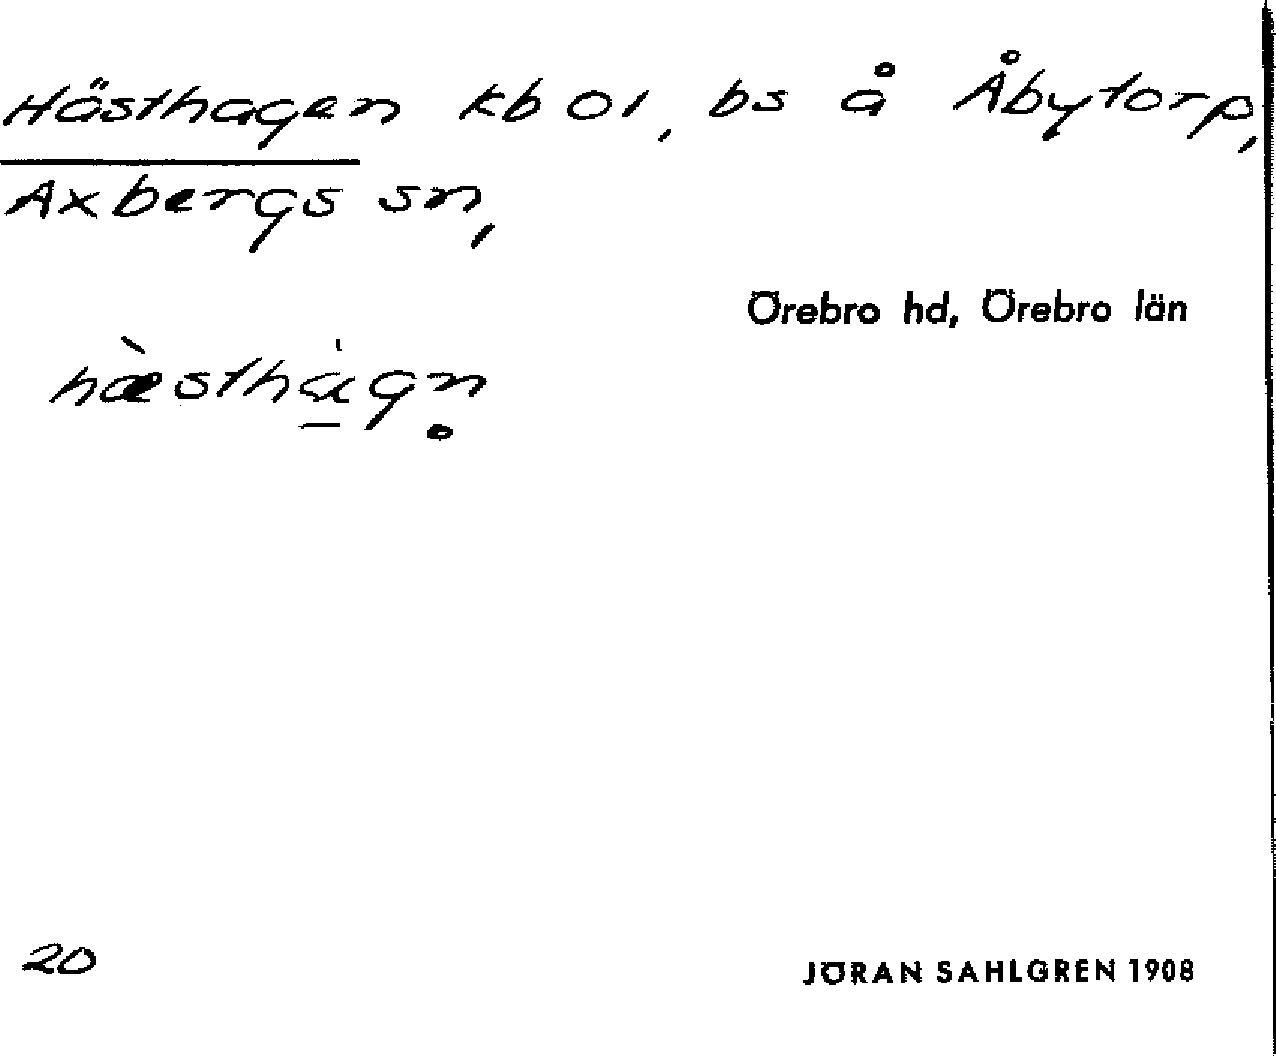 Hästhagen kb 01, bs å Åbytorp,
Axbergs sn,
Örebro hd, Örebro län
hæ̀sthà̠gn̥
20
JÖRAN SAHLGREN 1908